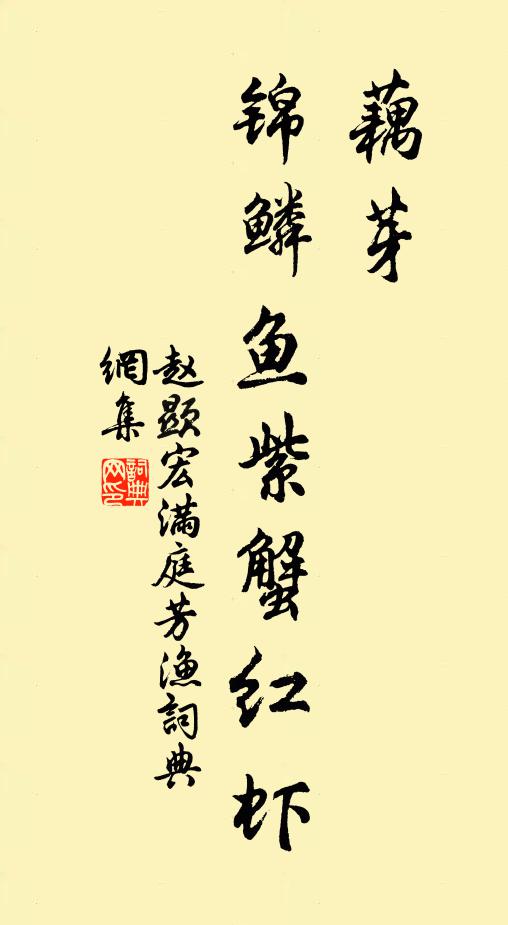 藕芽
锦鳞鱼紫蟹红虾
赵顯宏满庭芳渔詞典
網集
詞典网印